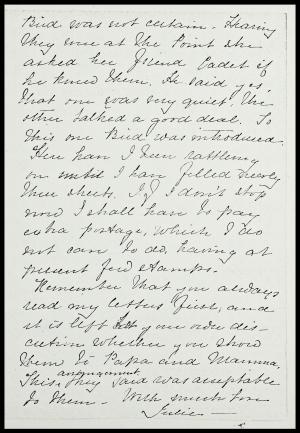 Bird was not certain - Hearing
they were at the Point she
asked her friend Cadet if
he knew them. He said yes,
that one was very quiet, the
other talked a good deal. To
this one Bird was introduced.
Here have I been rattling
on until I have filled nearly
three sheets. If I don't stop
now I shall have to pay
extra postage, which I do
not care to do, having at
present few stamps.
Remember that you always
read my letters first, and
it is left to your own dis-
cretion whether you show
them to Papa and Mamma.
This arrangement, they said was acceptable
to them - With much love
Julie -